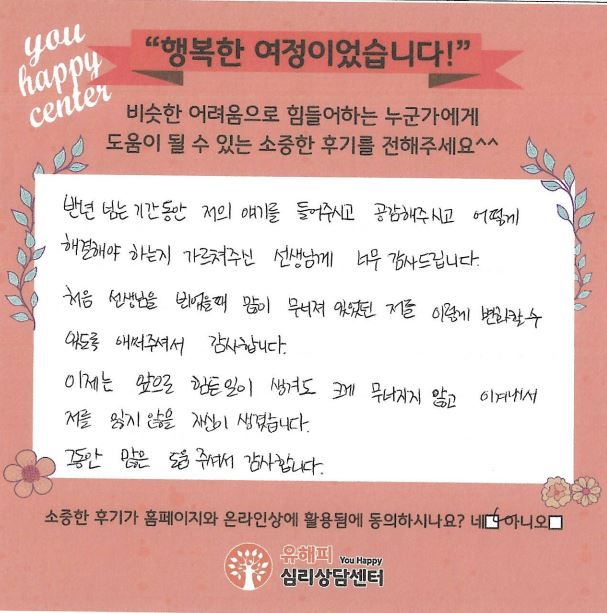 you
happy
center
“행복한 여정이었습니다!”
비슷한 어려움으로 힘들어하는 누군가에게
도움이 될 수 있는 소중한 후기를 전해주세요^^
반년 넘는 기간동안 저의 얘기를 들어주시고 공감해주시고 어떻게
해결해야 하는지 가르쳐주신 선생님께 너무 감사드립니다.
처음 선생님을 뵈었을때 많이 무너져 있었던 저를 이렇게 변화할 수
있도록 애써주셔서 감사합니다.
이제는 앞으로 힘든일이 생겨도 크게 무너지지 않고 이겨내서
저를 잃지 않을 자신이 생겼습니다.
그동안 많은 도움 주셔서 감사합니다.
소중한 후기가 홈페이지와 온라인상에 활용됨에 동의하시나요? 네 아니오
유해피 You Happy
심리상담센터